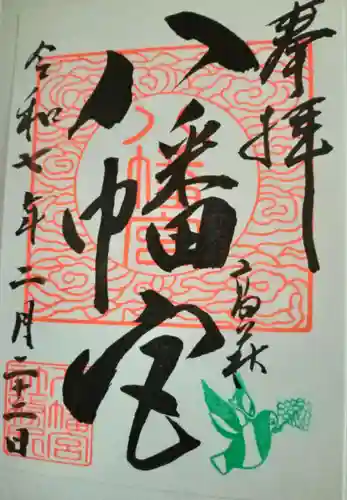 奉拝
高萩
八幡宮
八幡宮
令和七年二月二十二日